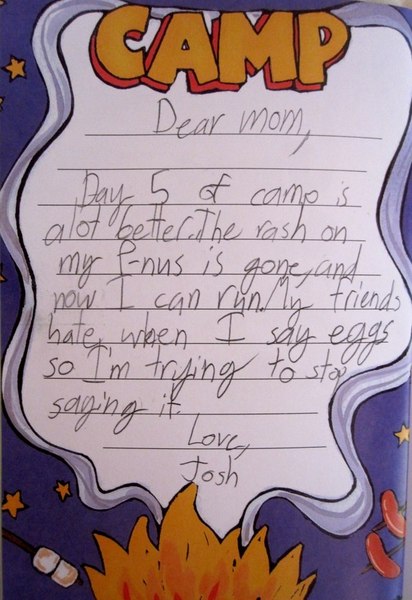 CAMP
Dear mom,
Day 5 of camp is
alot better. The rash on
my p-nus is gone, and
now I can run. My friends
hate when I say eggs
so I'm trying to stop
saying it.
Love,
Josh